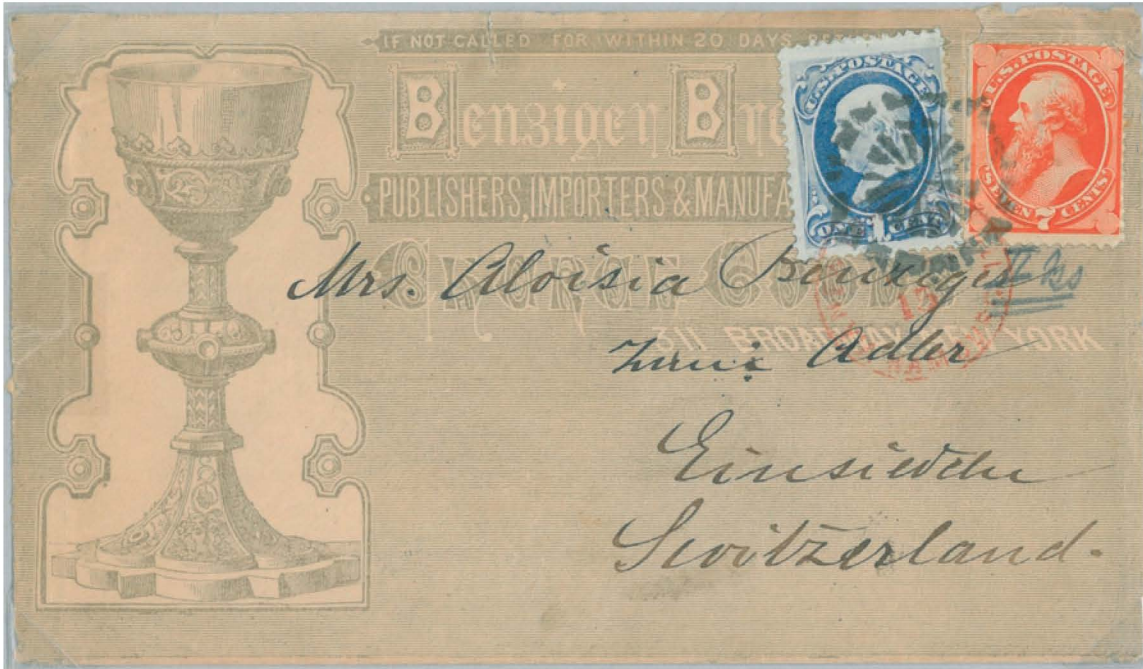 IF NOT CALLED FOR WITHIN 20 DAYS
Benziger Bre
PUBLISHERS, IMPORTERS & MANUFA
CHURCH GOO
311 BROADWAY, NEW YORK
U.S. POSTAGE
ONE 1 CENT
U.S. POSTAGE
SEVEN 7 CENTS
12
Mrs. Aloisia Benziger
Adler
Einsiedeln
Switzerland.